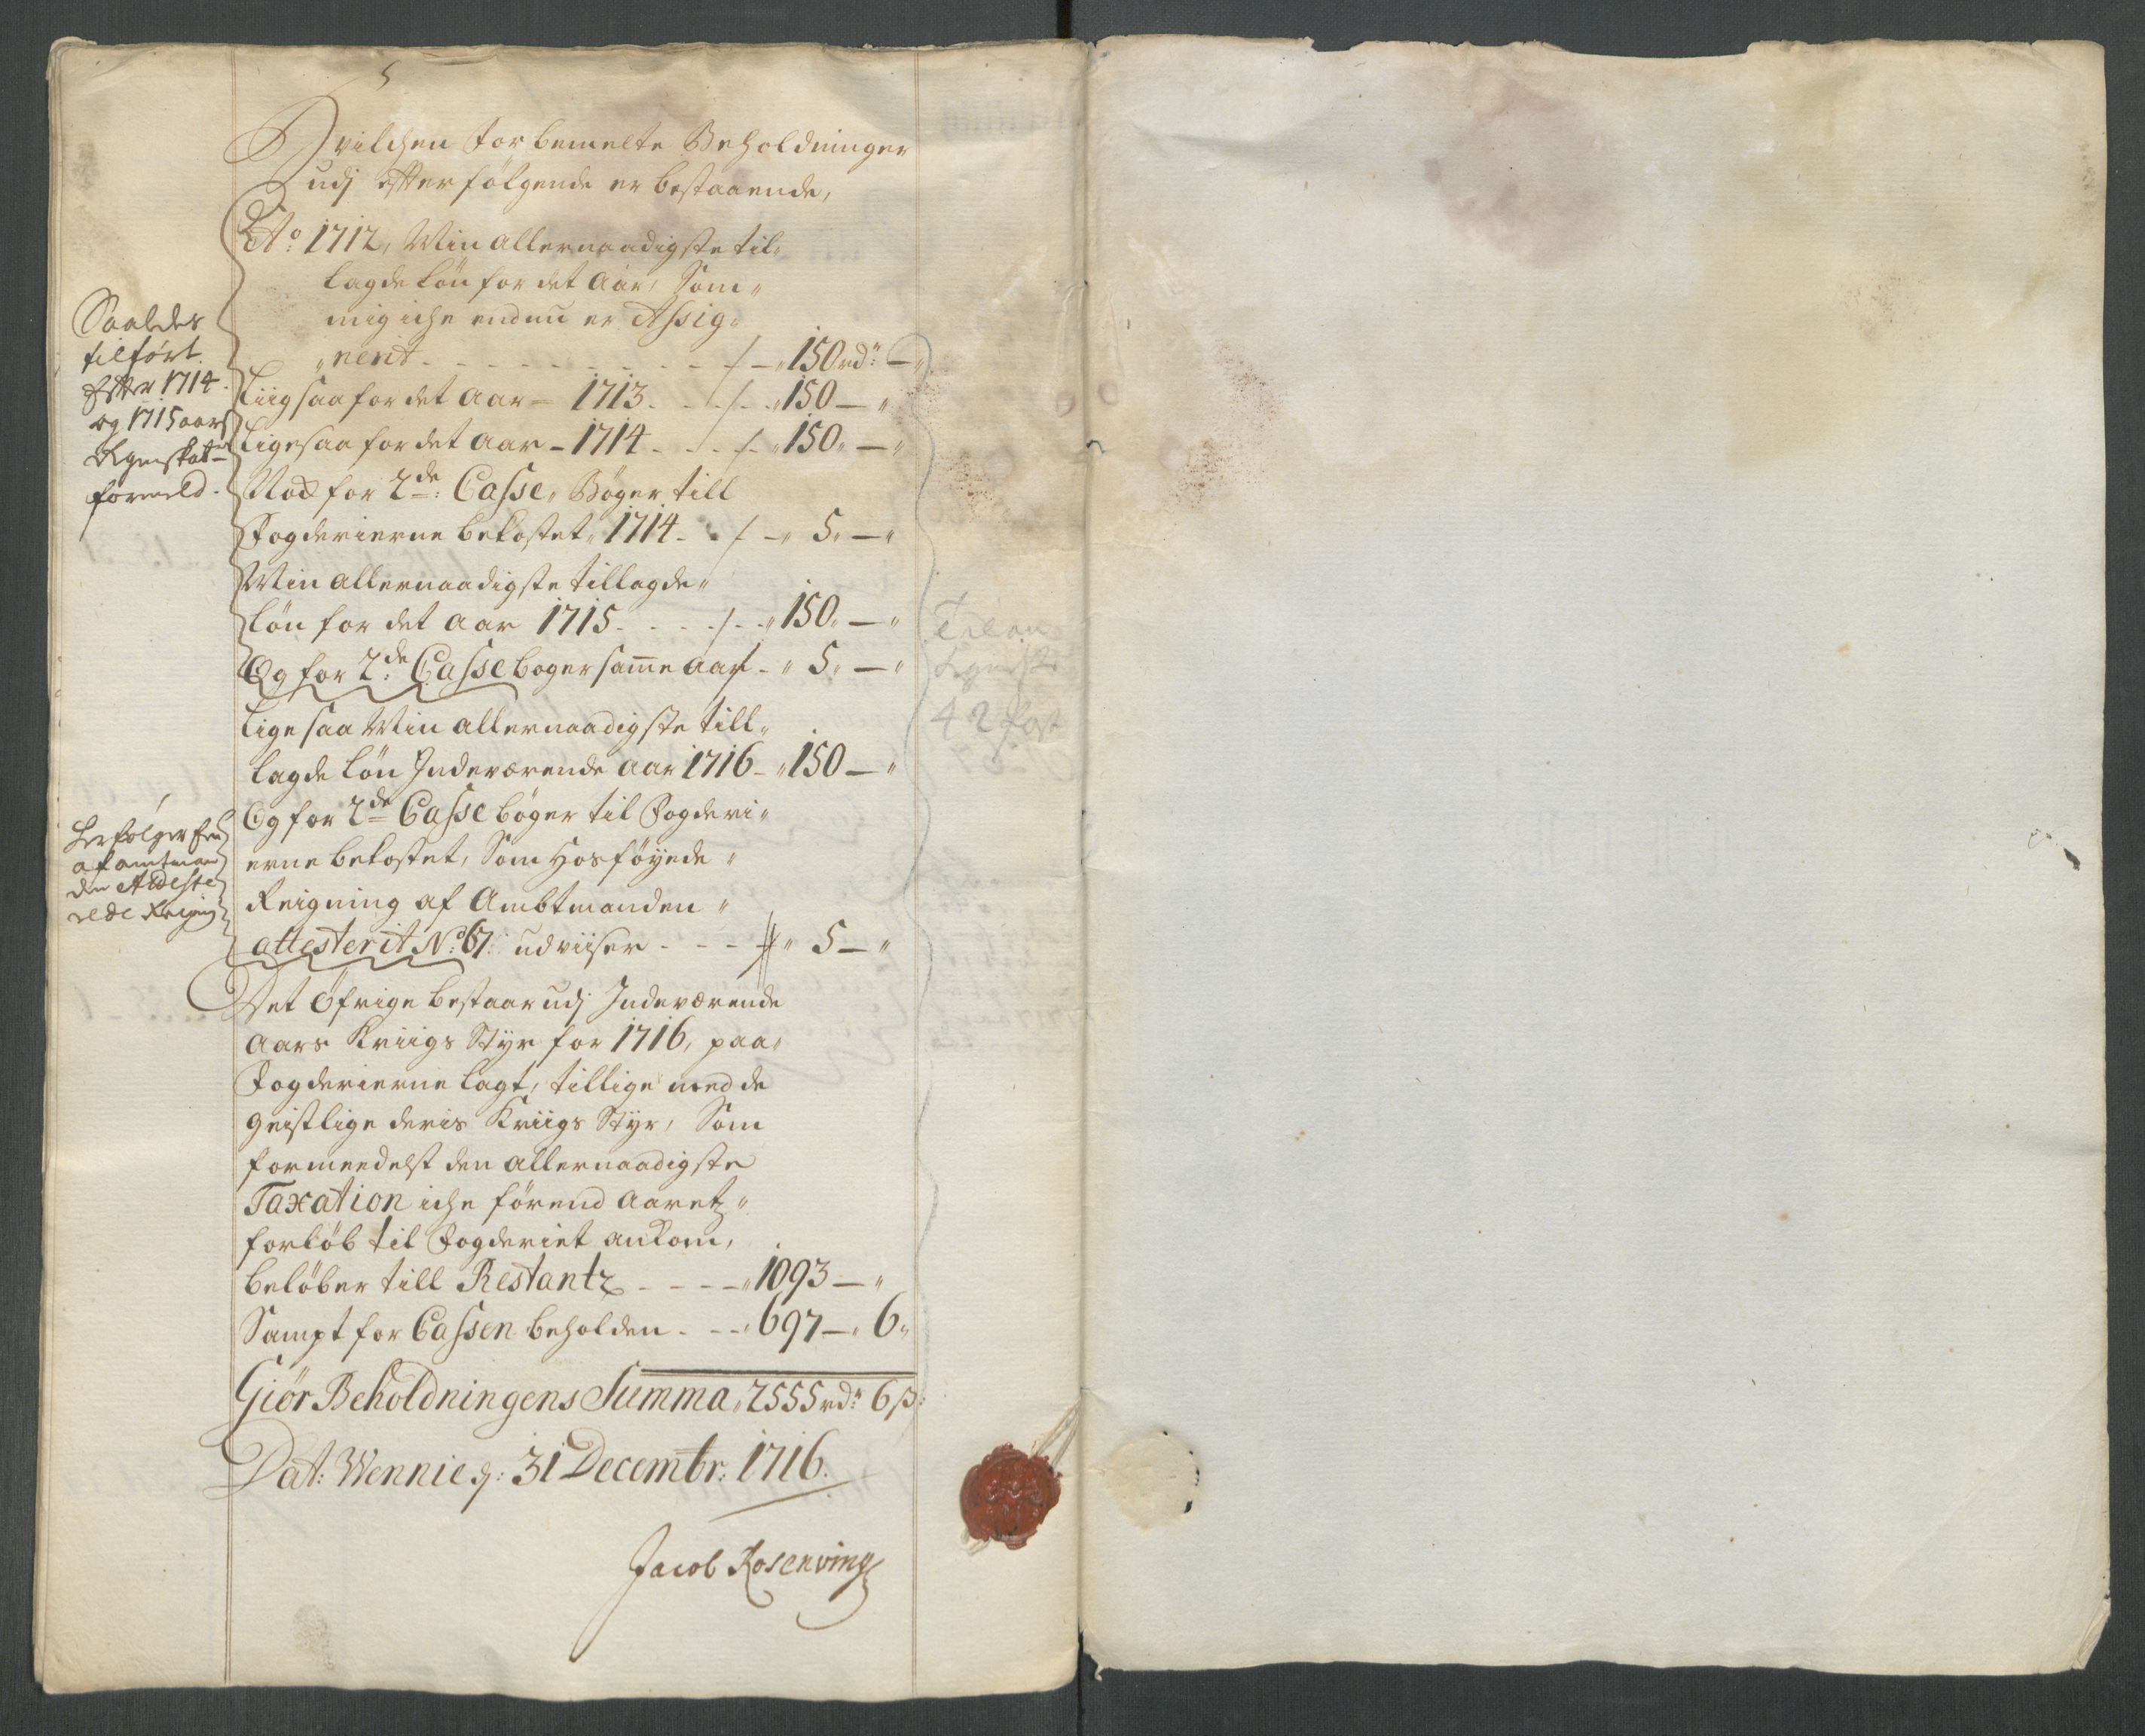 Hvilchen forbemelte Beholdninger
udj effterfølgende er bestaaende,
Ao: 1712, Min allernaadigste til,,
lagde løn for det Aar, Som,,
mig iche endnu er Assig,,
,,nerit - - - - - - - - - /-,, 150 rd: - ,,
Liigsaa for det Aar - 1713 - - - /- ,,150 - ,,
Ligesaa for det Aar - 1714 - - - /- ,,150,, - ,,
Nock for 2de: Casse,, Bøger till
Fogderierne bekostet,, 1714 - - / - ,, 5,, - ,,
Min allernaadigste tillagde,,
løn for det Aar 1715 - - - - /- - ,,150,, - ,,
Og for 2de: Casse boger samme aar - ,, 5,, - ,,
Lige saa Min allernaadigste till,,
lagde løn Indeværende Aar 1716 - ,,150 - ,,
Og for 2de Casse bøger til Fogderi,,
erne bekostet, Som Hosføyede ,,
Reigning af Ambtmanden ,,
attesterit No: 67: udviiser - - - ,, 5 - ,,
Det Øfrige bestaar udj Indeværende
Aars Kriigs Styr for 1716, paa,,
Fogderierne lagt, tillige med de
Geistlige deris Kriigs Styr, Som
formeedelst den allernaadigste
Taxation iche førend Aaretz,,
forløb til Fogderiet ankom,
beløber till Restantz - - - - ,,1093 - ,,
Sampt for Cassen beholden - - - ,,697 - ,, 6,,
Giør Beholdningens Summa,, 2555 rd: 6 ß:
Dat: Wennie d: 31 Decembr: 1716.
Jacob Rosenving
Saaledes
tilført
Efter 1714
og 1715 aars
Regenskab
formeld.
Herfølger
af amtman
den Atteste
rede Reigning
42 Post